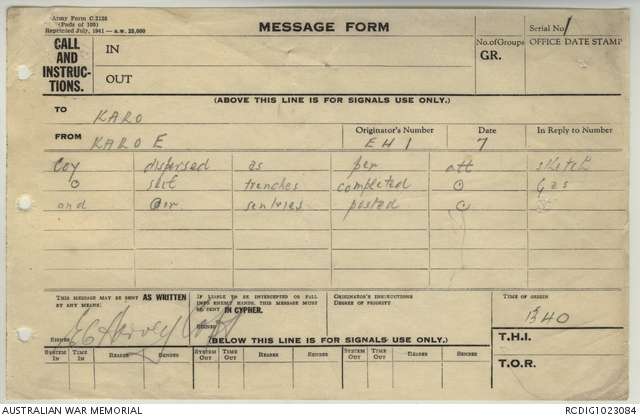 Army Form C.2128
(Pads of 100)
Reprinted July, 1941
MESSAGE FORM
Serial No. 1
CALL AND INSTRUCTIONS.
IN
OUT
No. of Groups
GR.
OFFICE DATE STAMP
(ABOVE THIS LINE IS FOR SIGNALS USE ONLY.)
TO KARO
FROM KARO E
Originator's Number EH 1
Date 7
In Reply to Number
Coy dispersed as per att sketch
slit trenches completed Gas
and air sentries posted
THIS MESSAGE MAY BE SENT AS WRITTEN BY ANY MEANS.
IF LIABLE TO BE INTERCEPTED OR FALL INTO ENEMY HANDS, THIS MESSAGE MUST BE SENT IN CYPHER.
ORIGINATOR'S INSTRUCTIONS
DEGREE OF PRIORITY
TIME OF ORIGIN
1340
SIGNED
SIGNED
(BELOW THIS LINE IS FOR SIGNALS USE ONLY.)
T.H.I.
T.O.R.
SYSTEM IN TIME IN READER SENDER SYSTEM OUT TIME OUT READER SENDER SYSTEM OUT TIME OUT READER SENDER
AUSTRALIAN WAR MEMORIAL
RCDIG1023084